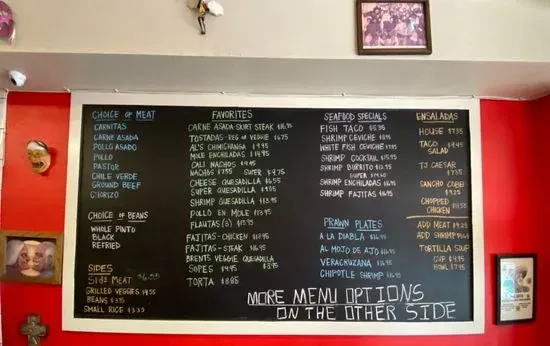 CHOICE OF MEAT
CARNITAS
CARNE ASADA
POLLO ASADO
POLLO
PASTOR
CHILE VERDE
GROUND BEEF
CHORIZO
CHOICE OF BEANS
WHOLE PINTO
BLACK
REFRIED
SIDES
SIDE MEAT
GRILLED VEGGIES
BEANS $3.95
SMALL RICE
FAVORITES
CARNE ASADA-SKIRT STEAK $16.95
TOSTADAS-REG OR VEGGIE $6.75
AL'S CHIMICHANGA $9.95
MOLE ENCHILADAS $14.95
CALI NACHOS $9.95
NACHOS $7.55 SUPER $9.75
CHEESE QUESADILLA $6.55
SUPER QUESADILLA
SHRIMP QUESADILLA $13.95
POLLO EN MOLE $13.95
FLAUTAS (3) $13.95
FAJITAS-CHICKEN
FAJITAS-STEAK $16.95
BRENTS VEGGIE QUESADILLA
SOPES $4.95
TORTA $8.85
SEAFOOD SPECIALS
FISH TACO $5.95
SHRIMP CEVICHE
WHITE FISH CEVICHE
SHRIMP COCKTAIL $15.95
SHRIMP BURRITO
SUPER
SHRIMP ENCHILADAS $16.95
SHRIMP FAJITAS $16.95
PRAWN PLATES
A LA DIABLA $16.95
AL MOJO DE AJO $16.95
VERACRUZANA $16.95
CHIPOTLE SHRIMP $16.95
ENSALADAS
HOUSE $7.35
TACO SALAD $9.95
TJ CAESAR $7.35
SANCHO COBB $9.25
CHOPPED CHICKEN
ADD MEAT
ADD SHRIMP
TORTILLA SOUP
CUP $4.95
BOWL $7.95
MORE MENU OPTIONS
ON THE OTHER SIDE